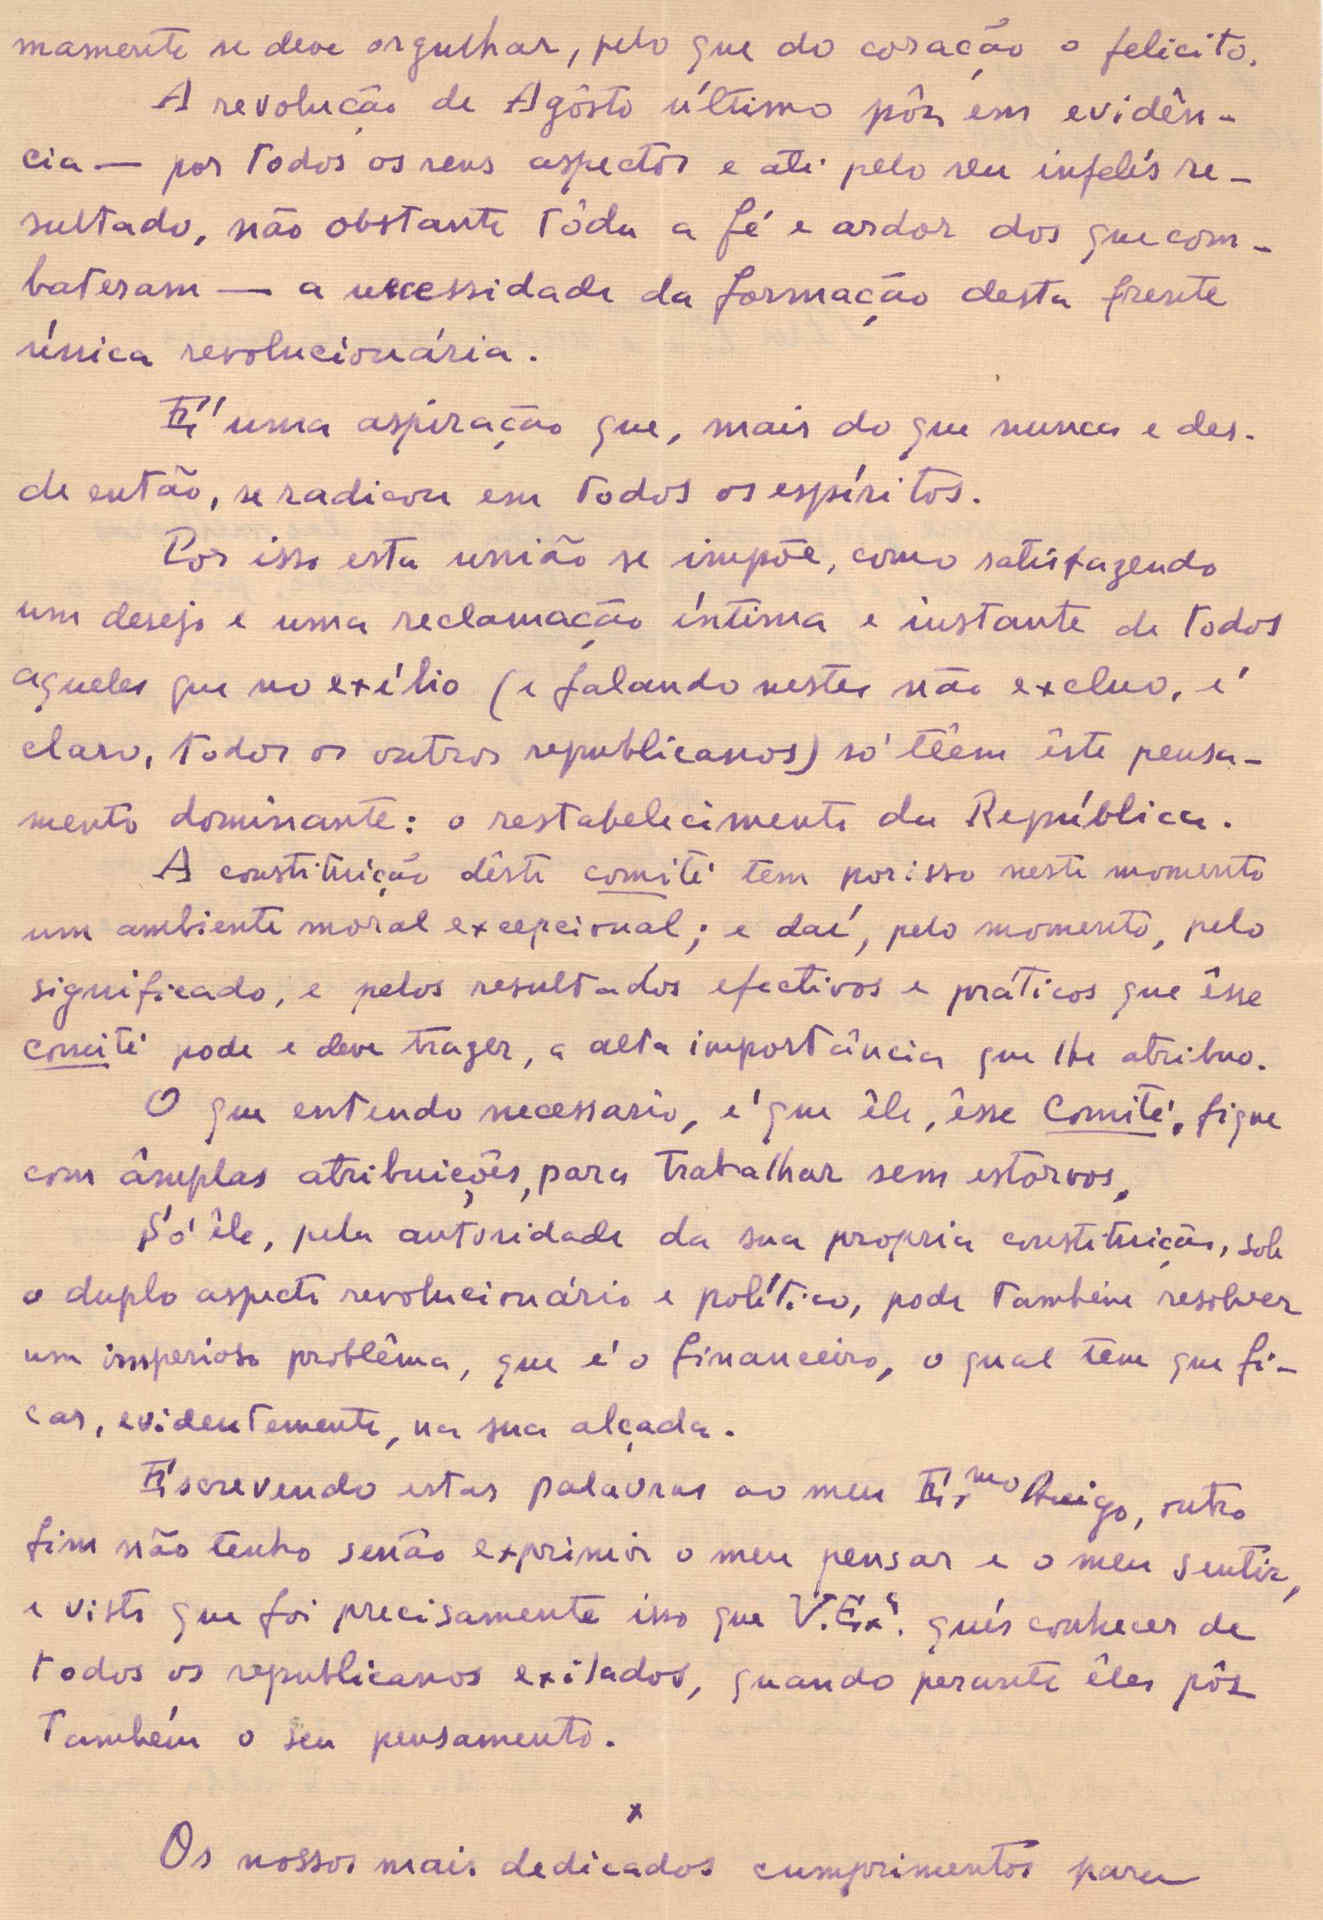 mamente se deve orgulhar, pelo que do coração o felicito.
A revolução de Agôsto último pôz em evidên-
cia — por todos os seus aspectos e até pelo seu infelís re-
sultado, não obstante tôda a fé e ardor dos que com-
bateram — a necessidade da formação desta frente
única revolucionária.
É uma aspiração que, mais do que nunca e des-
de então, se radicou em todos os espíritos.
Por isso esta união se impõe, como satisfazendo
um desejo e uma reclamação íntima e instante de todos
aqueles que no exílio (e falando nestes não excluo, é
claro, todos os outros republicanos) só têem êste pensa-
mento dominante: o restabelecimento da República.
A constituição dêste comité tem por isso neste momento
um ambiente moral excepcional; e daí, pelo momento, pelo
significado, e pelos resultados efectivos e práticos que êsse
comité pode e deve trazer, a alta importância que lhe atribuo.
O que entendo necessario, é que êle, êsse Comité, fique
com âmplas atribuições, para trabalhar sem estorvos.
Só êle, pela autoridade da sua propria constituição, sob
o duplo aspecto revolucionário e político, pode também resolver
um imperioso problêma, que é o financeiro, o qual tem que fi-
car, evidentemente, na sua alçada.
Escrevendo estas palavras ao meu Ex.mo Amigo, outro
fim não tenho senão exprimir o meu pensar e o meu sentir,
e visto que foi precisamente isso que V. Ex.ª quís conhecer de
todos os republicanos exilados, quando perante êles pôz
também o seu pensamento.
x
Os nossos mais dedicados cumprimentos para